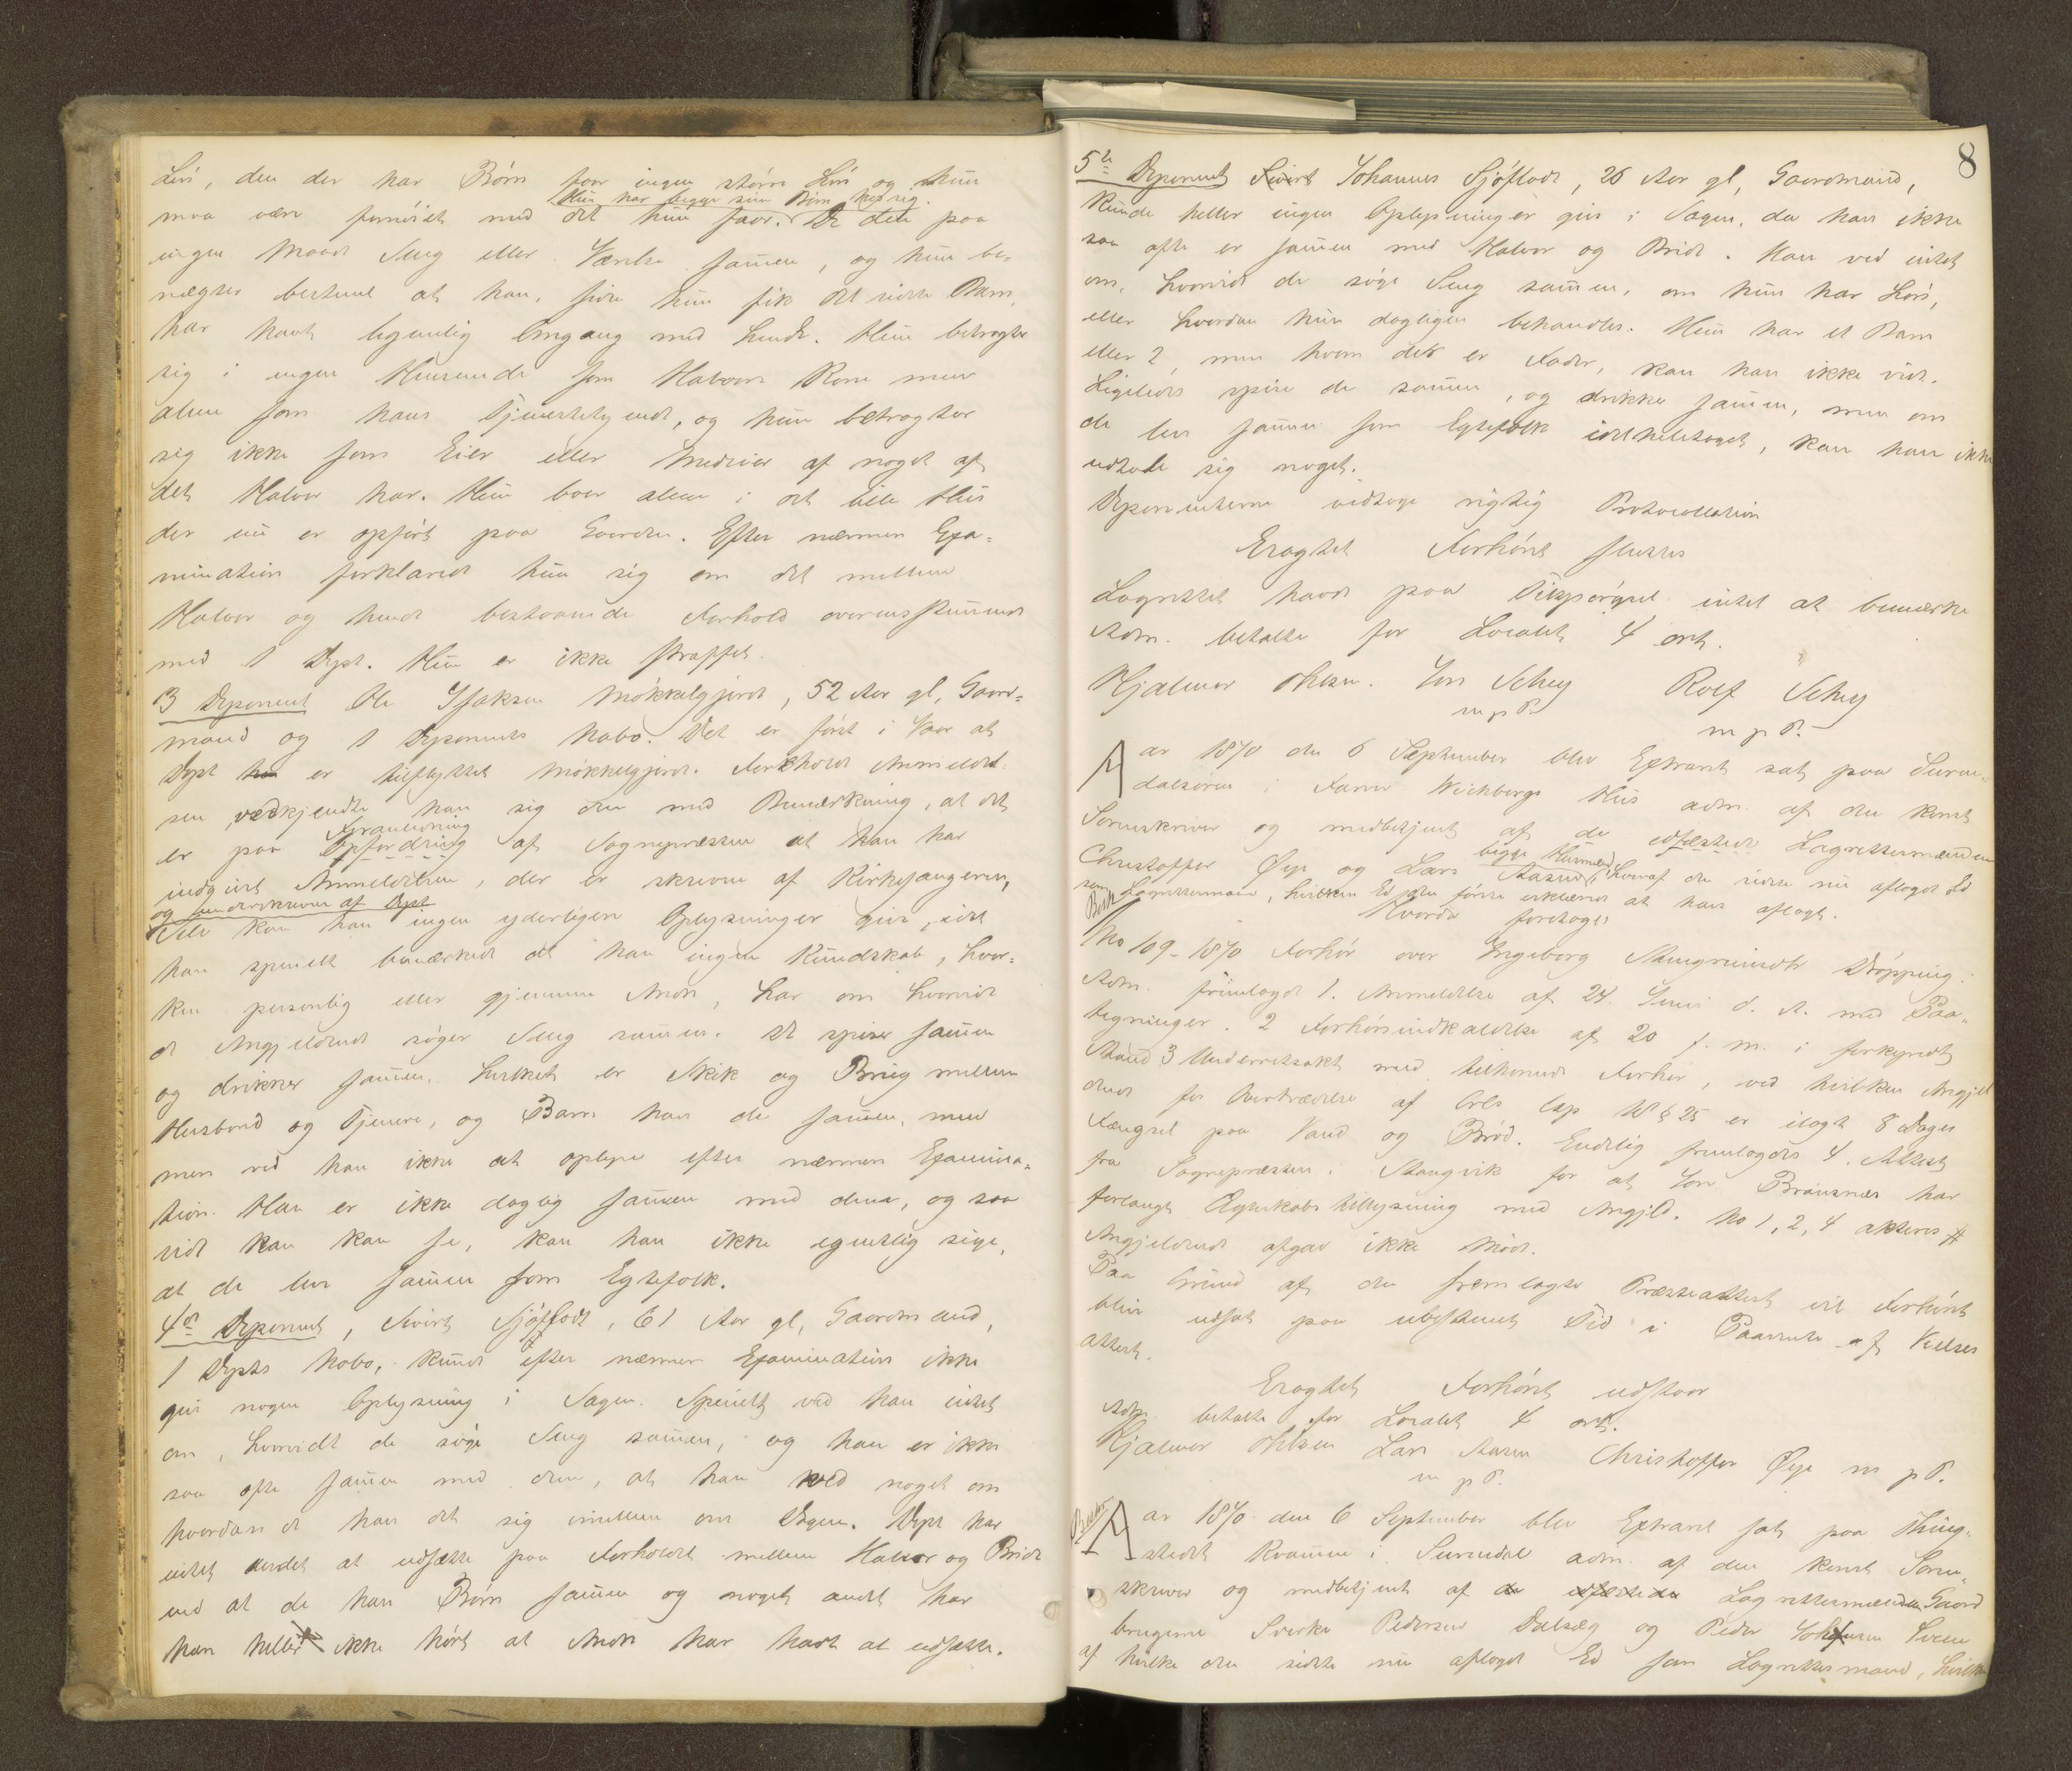 Løn, den der har Børn faar ingen større Løn og hun
Hun har begge sine Børn hos sig.
maa være fornøiet med det hun faar. De dele paa
ingen Maade Seng eller Værelse sammen, og hun be-
nægter bestemt at han, siden hun fik det sidste Barn,
har havt legemlig Omgang med hende. Hun betragter
sig i ingen Henseende som Halvors Kone men
alene som hans Tjenestetyende, og hun betragter
sig ikke som Eier eller Medeier af noget af
det Halvor har. Hun boer alene i det lille Hus
der nu er opført paa Gaarden. Efter nærmere Exa-
mination forklarede hun sig om det mellem
Halvor og hende bestaaende Forhold overensstemmende
med 1 Dept. Hun er ikke straffet.
3 Deponent Ole Isaksen Møkkelgjerdt, 52 Aar gl, Gaard-
mand og 1 Deponents Nabo. Det er først i Vaar at
Dept er tilflyttet Møkkelgjerdt. Foreholdt Anmeldel-
sen vedkjendte han sig den med Bemærkning, at det
Foranledning
er paa Opfordring af Sognepræsten at han har
indgivet Anmeldelsen, der er skreven af Kirkesangeren,
og underskreven af Dept
Selv kan han ingen yderligere Oplysninger give, idet
han specielt bemærkede at han ingen Kundskab, hver-
ken personlig eller gjennem Andre, har om hvorvidt
de Angjeldende søger Seng sammen. De spiser sammen
og drikker sammen, hvilket er Skik og Brug mellem
Husbond og Tjenere, og Barn have de sammen, men
mere ved han ikke at oplyse efter nærmere Examina-
tion. Han er ikke daglig sammen med dem, og saa
vidt han kan se, kan han ikke egentlig sige,
at de leve sammen som Egtefolk.
4de Deponent, Sivert Sjøflodt, 61 Aar gl, Gaardmand,
1 Depts Nabo, kunde efter nærmere Examination ikke
give nogen Oplysning i Sagen. Specielt ved han intet
om, hvorvidt de søge Seng sammen, og han er ikke
saa ofte sammen med dem, at han ved noget om
hvordan de have det sig imellem om Dagen. Dept har
intet andet at udsætte paa Forholdet mellem Halvor og Bridt
end at de have Børn sammen og noget andet har
han heller ikke hørt at Andre har havt at udsætte.
8
5te Deponent Johannes Sjøflodt, 26 Aar gl, Gaardmand,
kunde heller ingen Oplysninger give i Sagen, da han ikke
saa ofte er sammen med Halvor og Bridt. Han ved intet
om, hvorvidt de søge Seng sammen, om hun har Løn,
eller hvordan hun dagligen behandles. Hun har et Barn
eller 2, men hvem der er Fader, kan han ikke vide.
Ligeledes spise de sammen, og drikke sammen, men om
de leve sammen som Egtefolk idethele taget, kan han ikke
udtale sig noget.
Deponenterne vedtoge rigtig Protocollation
Eragtet Forhøret sluttes
Lagrettet havde paa Tilspørgsel intet at bemærke
Adm. betalte for Localet 4 ort.
Hjalmar Ohlsen. Jon Schey Rolf Schey
m p P. m p P.
Aar 1870 den 6 September blev Extraret sat paa Suren-
dalsøren i Farver Weichbergs Hus adm. af den konst
Sorenskriver og medbetjent af de edfæstede Lagrettesmænd
begge Husmænd
Christoffer Øye og Lars Aasen, hvoraf den sidste nu aflagde Ed
som Lagrettesmand, hvilken Ed den første erklærede at have aflagt.
Hvorda foretoges
No 109-1870 Forhør over Ingeborg Steingrimsdtr Drøpping.
Adm. fremlagde 1. Anmeldelse af 24 Juni d. A. med Paa-
tegninger. 2 Forhørsindkaldelse af 20 f. m. i forkyndt
Stand 3 Underretsakt med tilhørende Forhør, ved hvilken Angjel
dende for Overtrædelse af Crls Cap 18 § 25 er ilagt 8 Dages
Fængsel paa Vand og Brød. Endelig fremlagdes 4. Attest
fra Sognepræsten i Stangvik for at Jon Brønsnes har
forlangt Ægteskabs tillysning med Angjeld. No 1, 2, 4 akteres #
Angjeldende afgav ikke Møde.
Paa Grund af den fremlagte Præsteattest vil Forhøret
blive udsat paa ubestemt Tid i Paavente af Vielses
attest.
Eragtet Forhøret udstaar
Adm betalte for Localet 4 ort.
Hjalmar Ohlsen Lars Aasen Christoffer Øye m p P.
m p P.
Aar 1870 den 6 September blev Extraret sat paa Thing-
stedet Kvamme i Surendal adm. af den konst Soren-
skriver og medbetjent af Lagrettesmændene Gaard
brugerne Sverke Pedersen Dalsæg og Peder Johnsen Sveen
af hvilke den sidste nu aflagde Ed som Lagrettesmand, hvilken